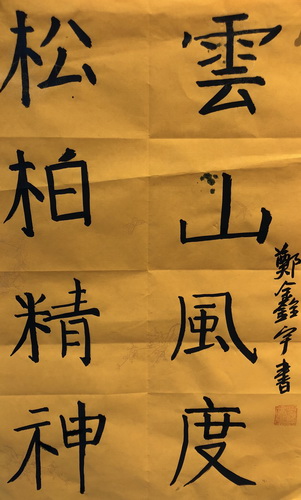 雲山風度
松柏精神
鄭鑫宇書